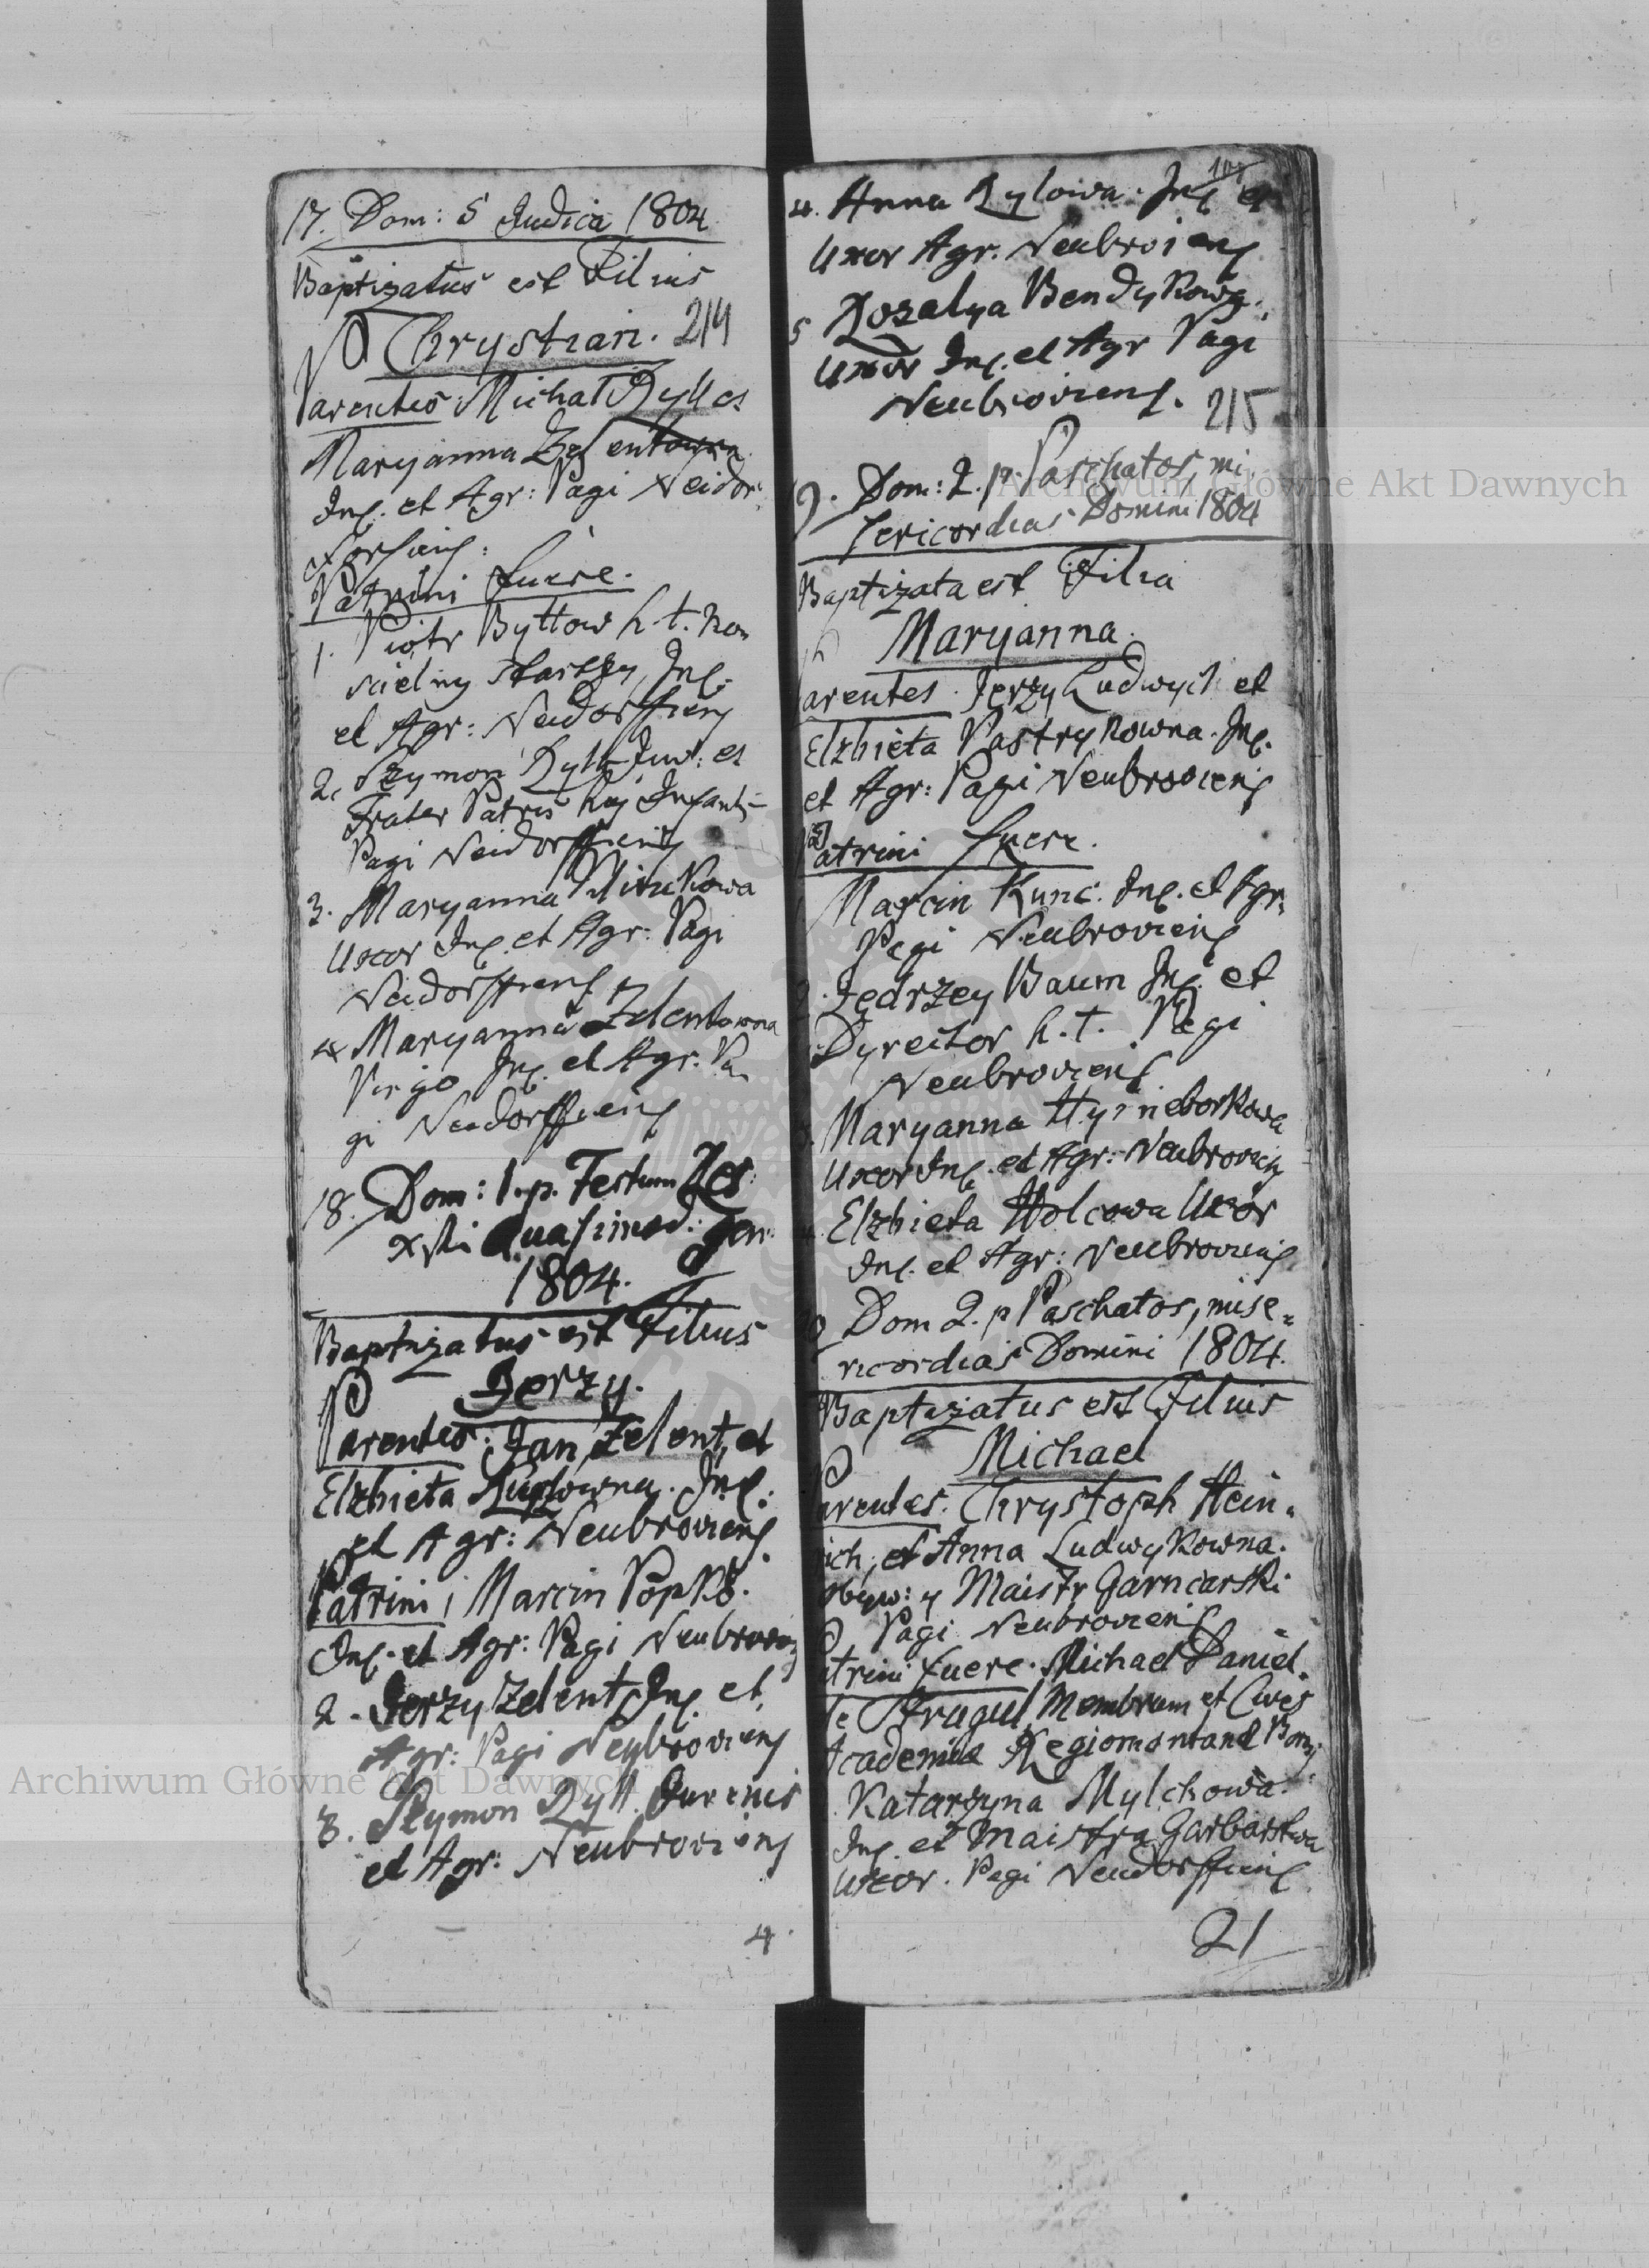 17. Dom: 5 Judica 1804
Baptizatus est Filius
Chrystian. 214
Parentes Michał Ryll et
Maryanna Zelentowna
Inq. et Agr: Pagi Neidor,
ffiens:
Patrini fuere.
1. Piotr Byttow h. t. Kos
cielny starszy, Inq.
et Agr: Neidorffiens
2. Szymon Ryll Juv: et
Frater Patris huj Infanti
Pagi Neidorffiens
3. Maryanna
Uxor Inq. et Agr: Pagi
Neidorffiens
4 Maryanna Zelentowna
Virgo Inq. et Agr. Pa
gi Neidorffiens
18. Dom: 1. p. Festum Res
xsti Quasimod: Gen:
1804.
Baptizatus est Filius
Jerzy.
Parentes: Jan Zelent, et
Elzbieta Inq:
et Agr: Neubroviens
Patrini, Marcin Popko.
Inq. et Agr: Pagi Neubroviens
2. Jerzy Zelent Inq. et
Agr: Pagi Neubroviens
3. Szymon Ryll Juvenis
et Agr: Neubroviens
4.
4. Anna Rylowa. Inq et
Uxor Agr. Neubroviens
5 Rozalya Bendykowa.
Uxor Inq. et Agr Pagi
Neubroviens. 215
9. Dom: 2. p. Paschatos, mi
sericordias Domini 1804
Baptizata est Filia
Maryanna.
Parentes. Jerzy Ludwych et
Elzbieta Pastrykowna. Inq.
et Agr: Pagi Neubroviens
Patrini fuere.
Marcin Kunc. Inq. et Agr.
Pagi Neubroviens
Jędrzey Baum Inq. et
Dyrector h. t. Pagi
Neubroviens
Maryanna Hyrneborkowa
Uxor Inq. et Agr: Neubroviens
Elzbieta Holcowa Uxor
Inq. et Agr: Neubroviens
Dom 2. p Paschatos, mise-
ricordias Domini 1804.
Baptizatus est Filius
Michael
Parentes. Chrystoph Hein-
rich, et Anna Ludwykowna.
Obyw: y Maistr Garncarski
Pagi Neubroviens
Patrini fuere. Michael Daniel.
le Strugul Membrum et Cives
Academiae Regiomontanae
Katarzyna Mylchowa.
Inq. et Maistra Garbarstwa
Uxor. Pagi Neudorffiens
21
Archiwum Główne Akt Dawnych
Archiwum Główne Akt Dawnych